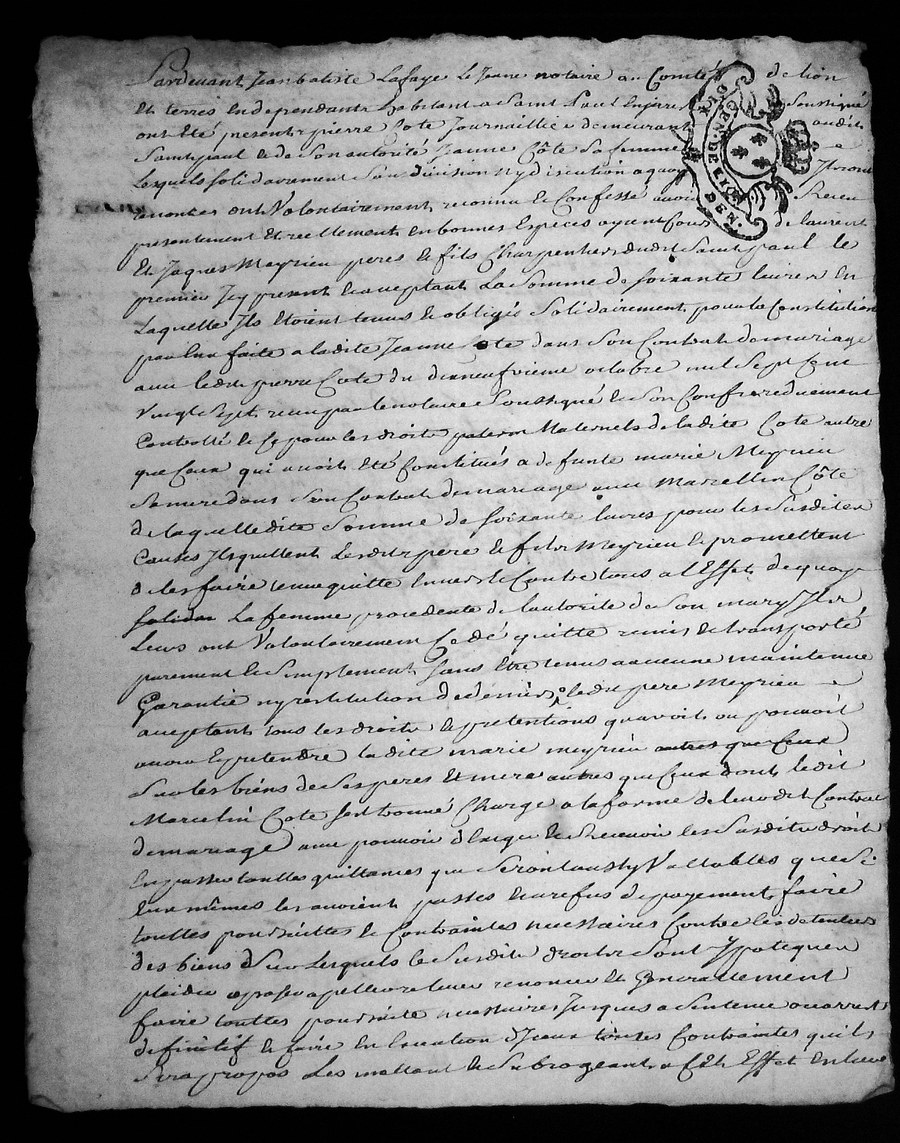 Pardevant Jean batiste Lafaye Le Jeune notaire au Comté de lion
Et terres En dependants habitant a Saint Paul Enjarrest Soussigné
ont Eté presents pierre Cote Journaillier demeurant audit
Saint paul & de Son autorité Jeanne Côte Sa femme
Lesquels solidairement Sans division ny discution a quoy Ils ont
renoncés ont Volontairement reconnu & Confessé avoir Receu
presentement Et reellement En bonnes Especes ayent Cours de laurent
Et Jaques Meyrieu peres & fils Charpentiers dudit Saint paul le
premier Icy present & aceptant La Somme de soixante livres En
Laquelle Ils Etoient tenus & obligés Solidairement pour la Constitution
par Eux faite a ladite Jeanne Cote dans Son Contrat de mariage
avec ledit pierre Cote du dixneufvieme octobre mil Sept Cent
vingt Sept receu par le notaire Soussigné & Son Confrere deuement
Controllé & Ce pour les droits paterns Maternels de ladite Cote autre
que Ceux qui avoit Eté Constitués a defunte marie Meyrieu
Sa mere dans Son Contrat de mariage avec Marcellin Côte
de laquelle dite Somme de soixante livres pour les Susdites
Causes Ils quittent Lesdits pere & fils Meyrieu & promettent
de les faire tenir quitte Envers & Contre tous a l'Effet de quoy
solidair La femme procedente de l'autorite de Son mary Ils
Leurs ont Volontairement Cedé quitte remis & transporté
purement & Simplement Sans Etre tenus a aucune maintenue
Garantie ny restitution de deniers ledit pere Meyrieu
aceptant tous les droits & pretentions qu'avoit ou pouvoit
avoir & pretendre ladite marie meyrieu autres que Ceux
Sur les biens de Ses peres Et mere autres que Ceux dont ledit
Marcelin Cote s'est trouvé Chargé a la forme de leurdit Contrat
de mariage avec pouvoir d'Exiger & Recevoir les Susdits droits
En passer touttes quittances qui Seront aussy Vallables que Si
Eux mêmes les avoient passés & au refus de payement faire
touttes poursuittes & Contraintes necessaires Contre les detenteurs
des biens Sur Lesquels les Susdits droits Sont Ypotequés
plaider oposer apeller relever renoncer Et Generallement
faire touttes poursuitte necessaires Jusques a Sentence ou arrest
definitif & faire En Execution d'Jceux toutes Contraintes qu'ils
Sera propos Les mettant & Subrogeant a Cet Effet En leur
GEN. DE LION
DEN.